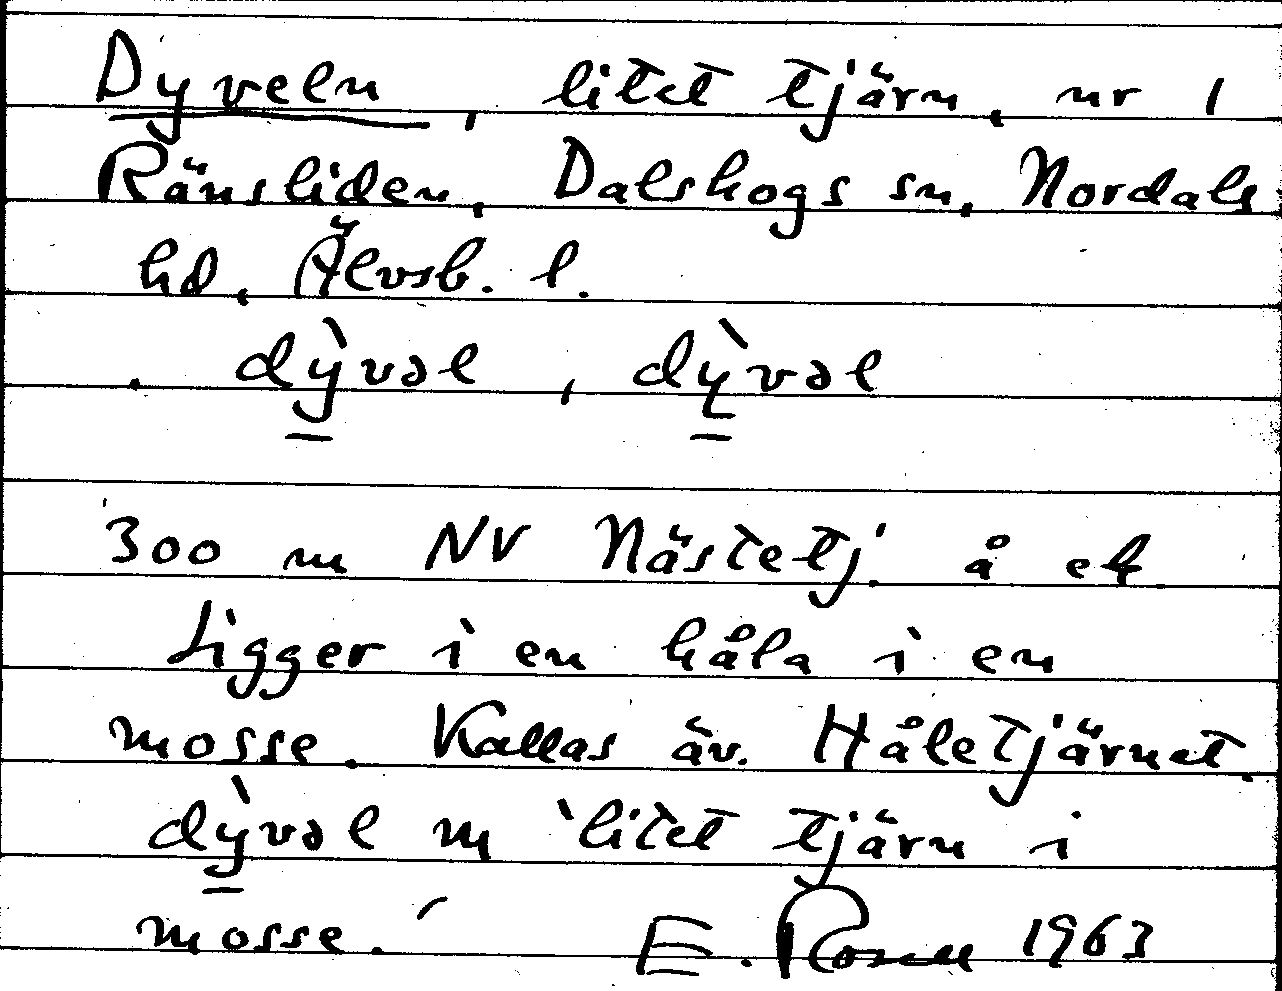 Dyveln, litet tjärn, nr 1
Ränsliden, Dalskogs sn, Nordals
hd, Älvsb. l.
dỳ̱vəl, dỳ̱vəl
300 m NV Nästetj. å ek
Ligger i en håla i en
mosse. Kallas äv. Håletjärnet.
dỳ̱vəl m ‛litet tjärn i
mosse.ʼ E. Rosell 1963